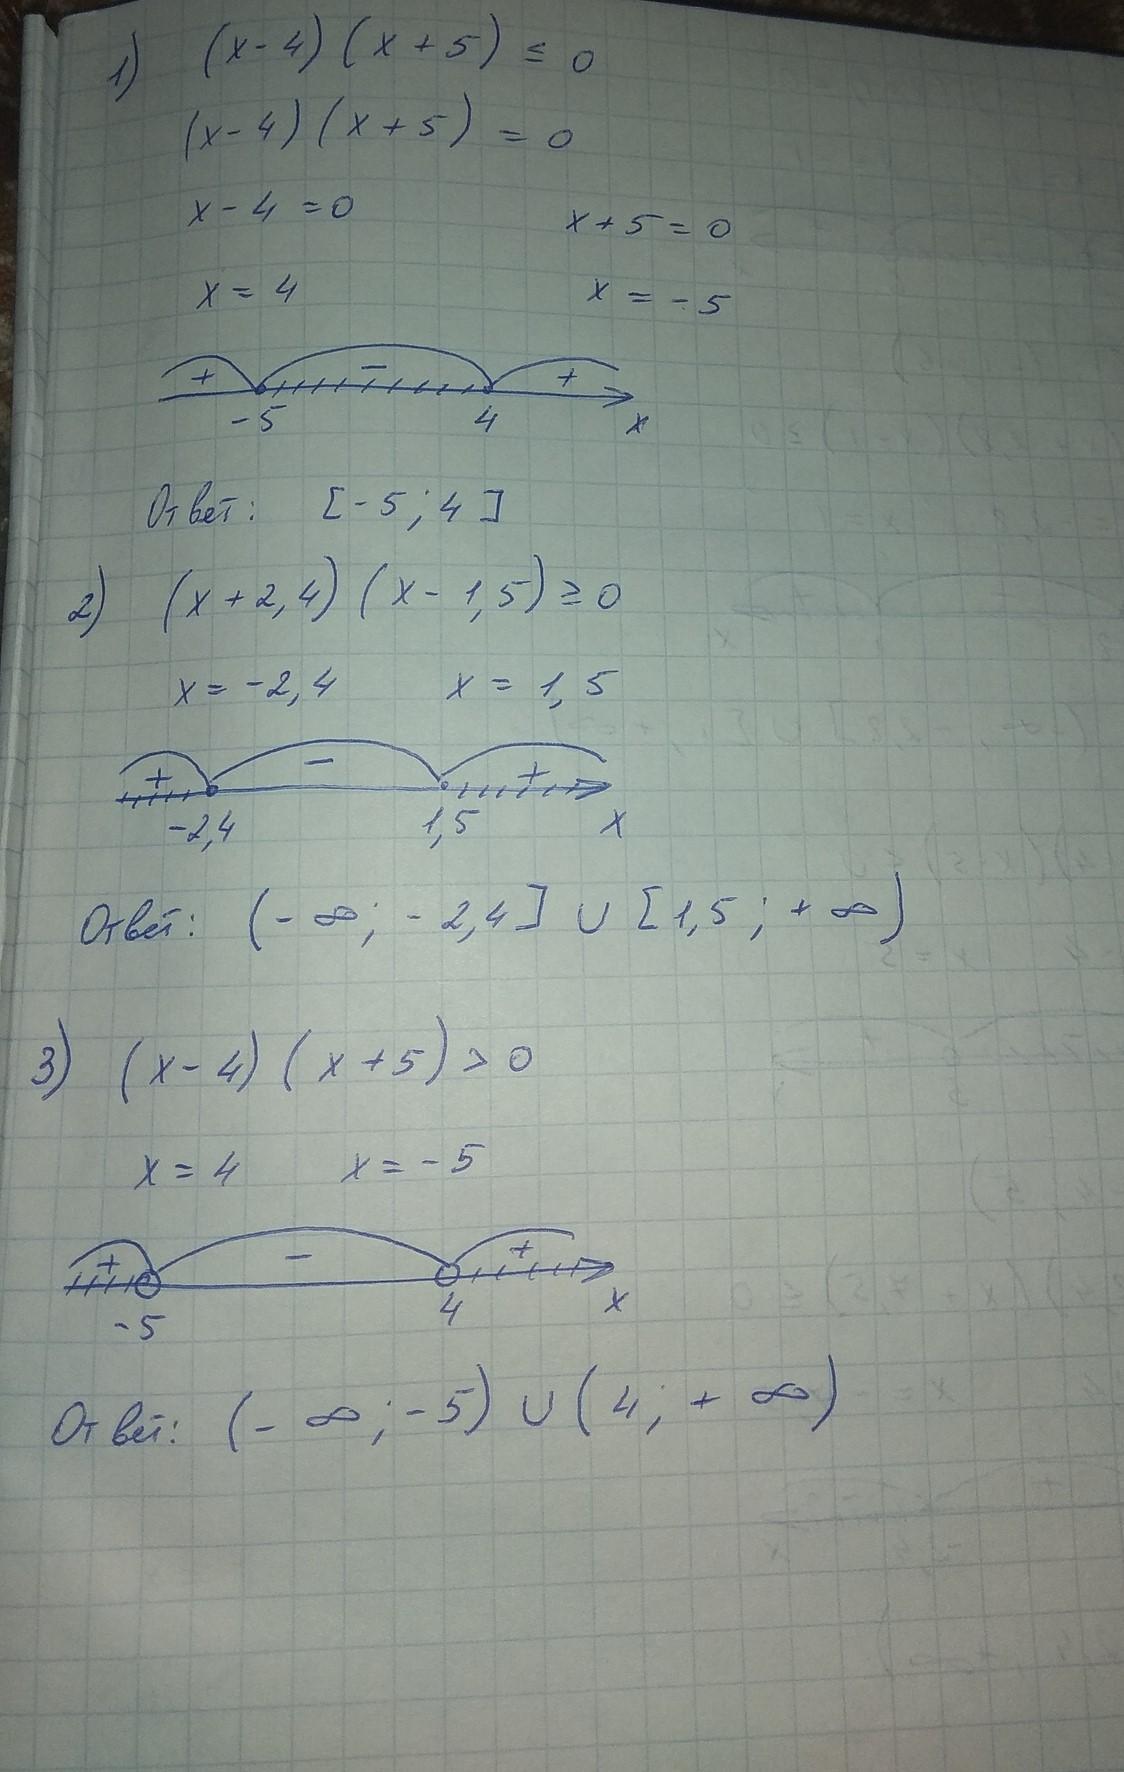 1) (x-4)(x+5) ≤ 0
(x-4)(x+5) = 0
x-4=0 x+5=0
x=4 x=-5
+ - +
-5 4 x
Ответ: [-5; 4]
2) (x+2,4)(x-1,5)≥0
x=-2,4 x=1,5
+ - +
-2,4 1,5 x
Ответ: (-∞; -2,4] ∪ [1,5; +∞)
3) (x-4)(x+5)>0
x=4 x=-5
+ - +
-5 4 x
Ответ: (-∞; -5) ∪ (4; +∞)